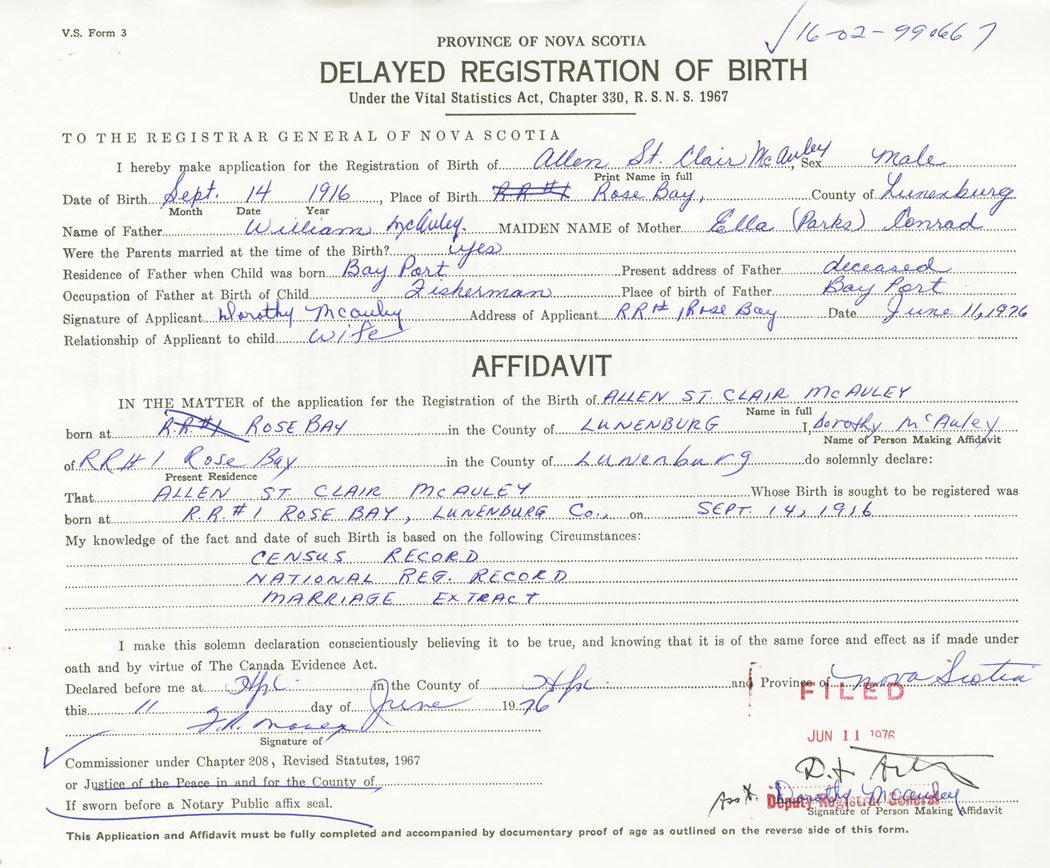 V.S. Form 3
16-02-990667
PROVINCE OF NOVA SCOTIA
DELAYED REGISTRATION OF BIRTH
Under the Vital Statistics Act, Chapter 330, R. S. N. S. 1967
TO THE REGISTRAR GENERAL OF NOVA SCOTIA
I hereby make application for the Registration of Birth of Allen St. Clair McAuley Sex Male
Print Name in full
Date of Birth Sept. 14 1916, Place of Birth R.R.#1 Rose Bay, County of Lunenburg
Month Date Year
Name of Father William McAuley. MAIDEN NAME of Mother Ella (Parks) Conrad
Were the Parents married at the time of the Birth? yes
Residence of Father when Child was born Bay Port Present address of Father deceased
Occupation of Father at Birth of Child Fisherman Place of birth of Father Bay Port
Signature of Applicant Dorothy Mcauley Address of Applicant RR# 1 Rose Bay Date June 11, 1976
Relationship of Applicant to child wife
AFFIDAVIT
IN THE MATTER of the application for the Registration of the Birth of ALLEN ST. CLAIR MCAULEY
Name in full
born at R.R.#1 ROSE BAY in the County of LUNENBURG I, Dorothy McAuley
Name of Person Making Affidavit
of RR#1 Rose Bay in the County of Lunenburg do solemnly declare:
Present Residence
That ALLEN ST. CLAIR MCAULEY Whose Birth is sought to be registered was
born at R.R.#1 ROSE BAY, LUNENBURG Co., on SEPT. 14, 1916
My knowledge of the fact and date of such Birth is based on the following Circumstances:
CENSUS RECORD
NATIONAL REG. RECORD
MARRIAGE EXTRACT
I make this solemn declaration conscientiously believing it to be true, and knowing that it is of the same force and effect as if made under
oath and by virtue of The Canada Evidence Act.
Declared before me at Hfx. in the County of Hfx. and Province of Nova Scotia
FILED
this 11 day of June 1976
JUN 11 1976
Signature of
Commissioner under Chapter 208, Revised Statutes, 1967
or Justice of the Peace in and for the County of
Ass't. Deputy Registrar General
Dorothy Mcauley
If sworn before a Notary Public affix seal.
Signature of Person Making Affidavit
This Application and Affidavit must be fully completed and accompanied by documentary proof of age as outlined on the reverse side of this form.